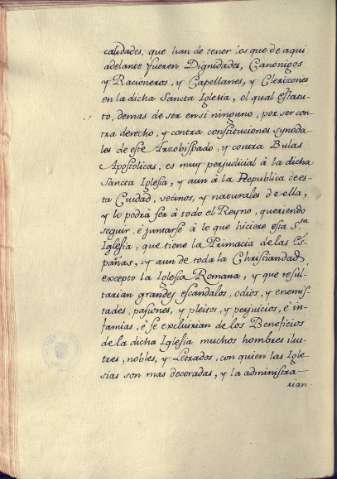 calidades, que han de tener los que de aqui
adelante fueren Dignidades, Canonigos
y Racioneros, y Capellanes, y Clerizones
en la dicha Sancta Iglesia, el qual estatu-
to, demas de ser en si ninguno, por ser con-
tra derecho, y contra constituciones synoda-
les de este Arzobispado, y contra Bulas
Apostolicas, es muy perjudicial à la dicha
Sancta Iglesia, y aun à la Republica de es-
ta Ciudad, vecinos, y naturales de ella,
y lo podra ser à todo el Reyno, queriendo
seguir, è juntarse à lo que hiciere esta Sta.
Iglesia, que tiene la Primacia de las Es-
pañas, y aun de toda la Christiandad,
excepto la Iglesia Romana, y que resul-
tarian grandes escandalos, odios, y enemis-
tades, pasiones, y pleitos, y perjuicios, è in-
famias, è se excluirian de los Beneficios
de la dicha Iglesia muchos hombres ilus-
tres, nobles, y Letrados, con quien las Igle-
sias son mas decoradas, y la administra-
rian